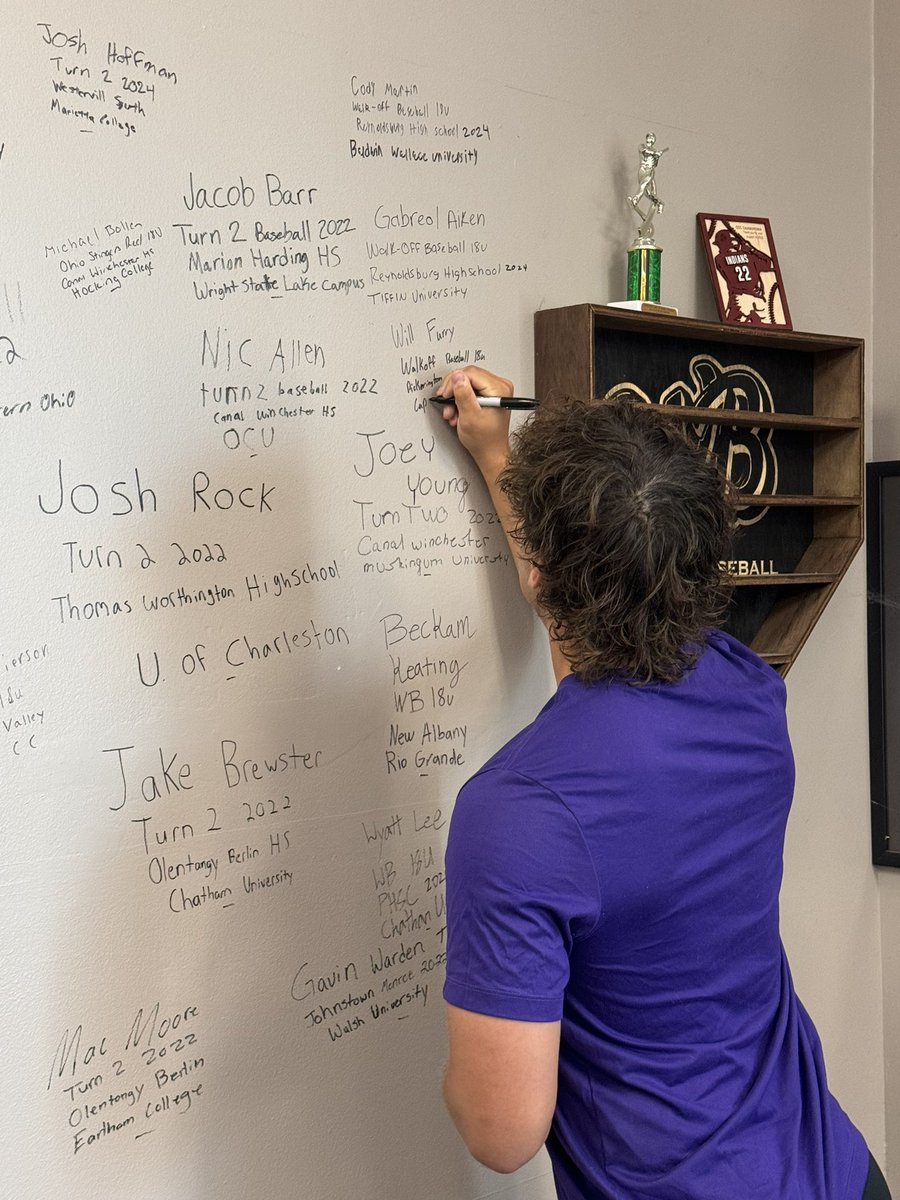 Josh Hoffman
Turn 2 2024
Westerville South
Marietta College
Cody Martin
Walk-off Baseball 18u
Reynoldsburg High school 2024
Baldwin Wallace university
Jacob Barr
Turn 2 Baseball 2022
Marion Harding HS
Wright State Lake Campus
Gabreol Aiken
Walk-OFF Baseball 18u
Reynoldsburg High school 2024
TIFFIN University
Michael Bollen
Ohio Stingers Red 18U
Canal Winchester HS
Hocking College
Will Furry
Walkoff Baseball 18u
Pickerington
Cap
Nic Allen
turn 2 baseball 2022
Canal Winchester HS
OCU
ern Ohio
Joey
Young
Turn Two 2022
Canal winchester
muskingum University
Josh Rock
Turn 2 2022
Thomas Worthington Highschool
U. of Charleston
Beckam
Keating
WB 18u
New Albany
Rio Grande
ierson
18u
Valley
CC
Jake Brewster
Turn 2 2022
Olentangy Berlin HS
Chatham University
Wyatt Lee
WB 18U
PHSC 202
Chatham U
Gavin Warden T
Johnstown Monroe 2022
Walsh University
Mac Moore
Turn 2 2022
Olentangy Berlin
Earlham College
INDIANS
22
B
SEBALL